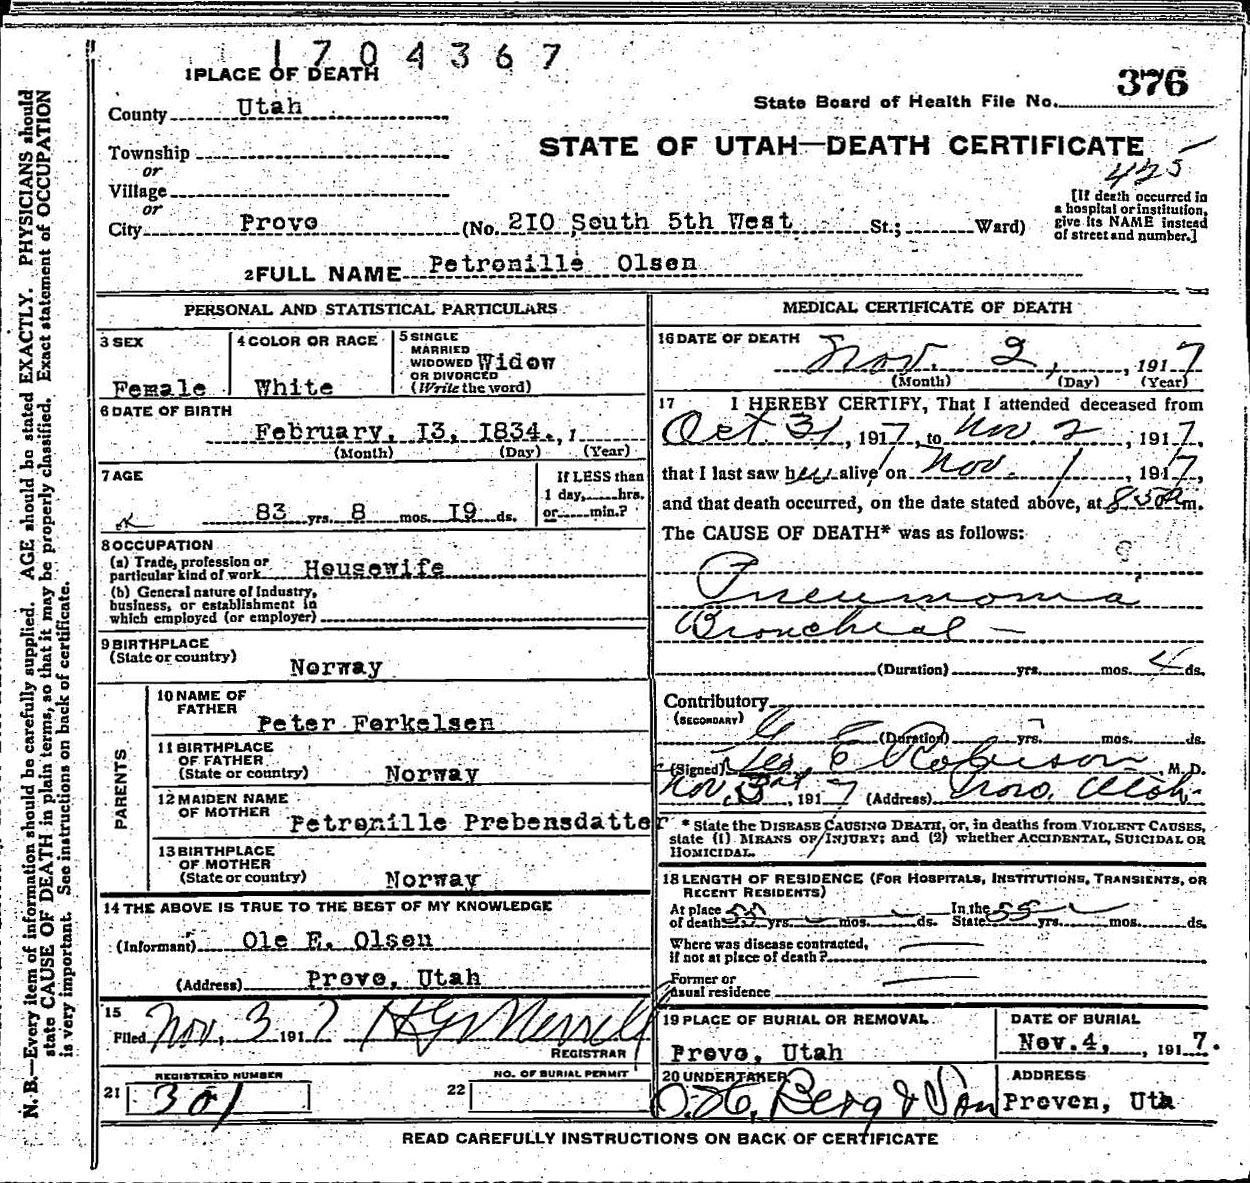 1704367
1 PLACE OF DEATH
376
State Board of Health File No.
County Utah
STATE OF UTAH—DEATH CERTIFICATE
Township
or
425
Village
or
[If death occurred in a hospital or institution, give its NAME instead of street and number.]
City Provo (No. 210 South 5th West St.; Ward)
2 FULL NAME Petronille Olsen
PERSONAL AND STATISTICAL PARTICULARS
3 SEX
Female
4 COLOR OR RACE
White
5 SINGLE
MARRIED
WIDOWED Widow
OR DIVORCED
(Write the word)
6 DATE OF BIRTH
February, 13, 1834., 1
(Month) (Day) (Year)
7 AGE
83 yrs. 8 mos. 19 ds.
If LESS than
1 day, hrs.
or min.?
8 OCCUPATION
(a) Trade, profession or
particular kind of work Housewife
(b) General nature of Industry,
business, or establishment in
which employed (or employer)
9 BIRTHPLACE
(State or country)
Norway
PARENTS
10 NAME OF
FATHER
Peter Forkelsen
11 BIRTHPLACE
OF FATHER
(State or country) Norway
12 MAIDEN NAME
OF MOTHER
Petronille Prebensdatter
13 BIRTHPLACE
OF MOTHER
(State or country) Norway
14 THE ABOVE IS TRUE TO THE BEST OF MY KNOWLEDGE
(Informant) Ole E. Olsen
(Address) Provo, Utah
15
Filed Nov. 3 1917 H G Merrill
REGISTRAR
REGISTERED NUMBER
21 301
NO. OF BURIAL PERMIT
22
MEDICAL CERTIFICATE OF DEATH
16 DATE OF DEATH
Nov. 2, , 1917
(Month) (Day) (Year)
17 I HEREBY CERTIFY, That I attended deceased from
Oct 31, 1917, to Nov 2, 1917,
that I last saw her alive on Nov. 1, 1917,
and that death occurred, on the date stated above, at m.
The CAUSE OF DEATH* was as follows:
Pneumonia
Bronchial —
(Duration) yrs. mos. 4 ds.
Contributory
(SECONDARY)
(Duration) yrs. mos. ds.
(Signed) Geo. E Robison M. D.
Nov. 3rd, 1917 (Address) Provo. Utah.
* State the DISEASE CAUSING DEATH, or, in deaths from VIOLENT CAUSES,
state (1) MEANS OF INJURY; and (2) whether ACCIDENTAL, SUICIDAL OR
HOMICIDAL.
18 LENGTH OF RESIDENCE (FOR HOSPITALS, INSTITUTIONS, TRANSIENTS, OR
RECENT RESIDENTS)
At place
of death 55 yrs. mos. ds.
In the
State 55 yrs. mos. ds.
Where was disease contracted,
if not at place of death?
Former or
usual residence
19 PLACE OF BURIAL OR REMOVAL
Provo, Utah
DATE OF BURIAL
Nov. 4, , 1917.
20 UNDERTAKER
O. H. Berg & Son
ADDRESS
Proven, Uta
READ CAREFULLY INSTRUCTIONS ON BACK OF CERTIFICATE
N. B.—Every item of information should be carefully supplied. AGE should be stated EXACTLY. PHYSICIANS should
state CAUSE OF DEATH in plain terms, so that it may be properly classified. Exact statement of OCCUPATION
is very important. See instructions on back of certificate.